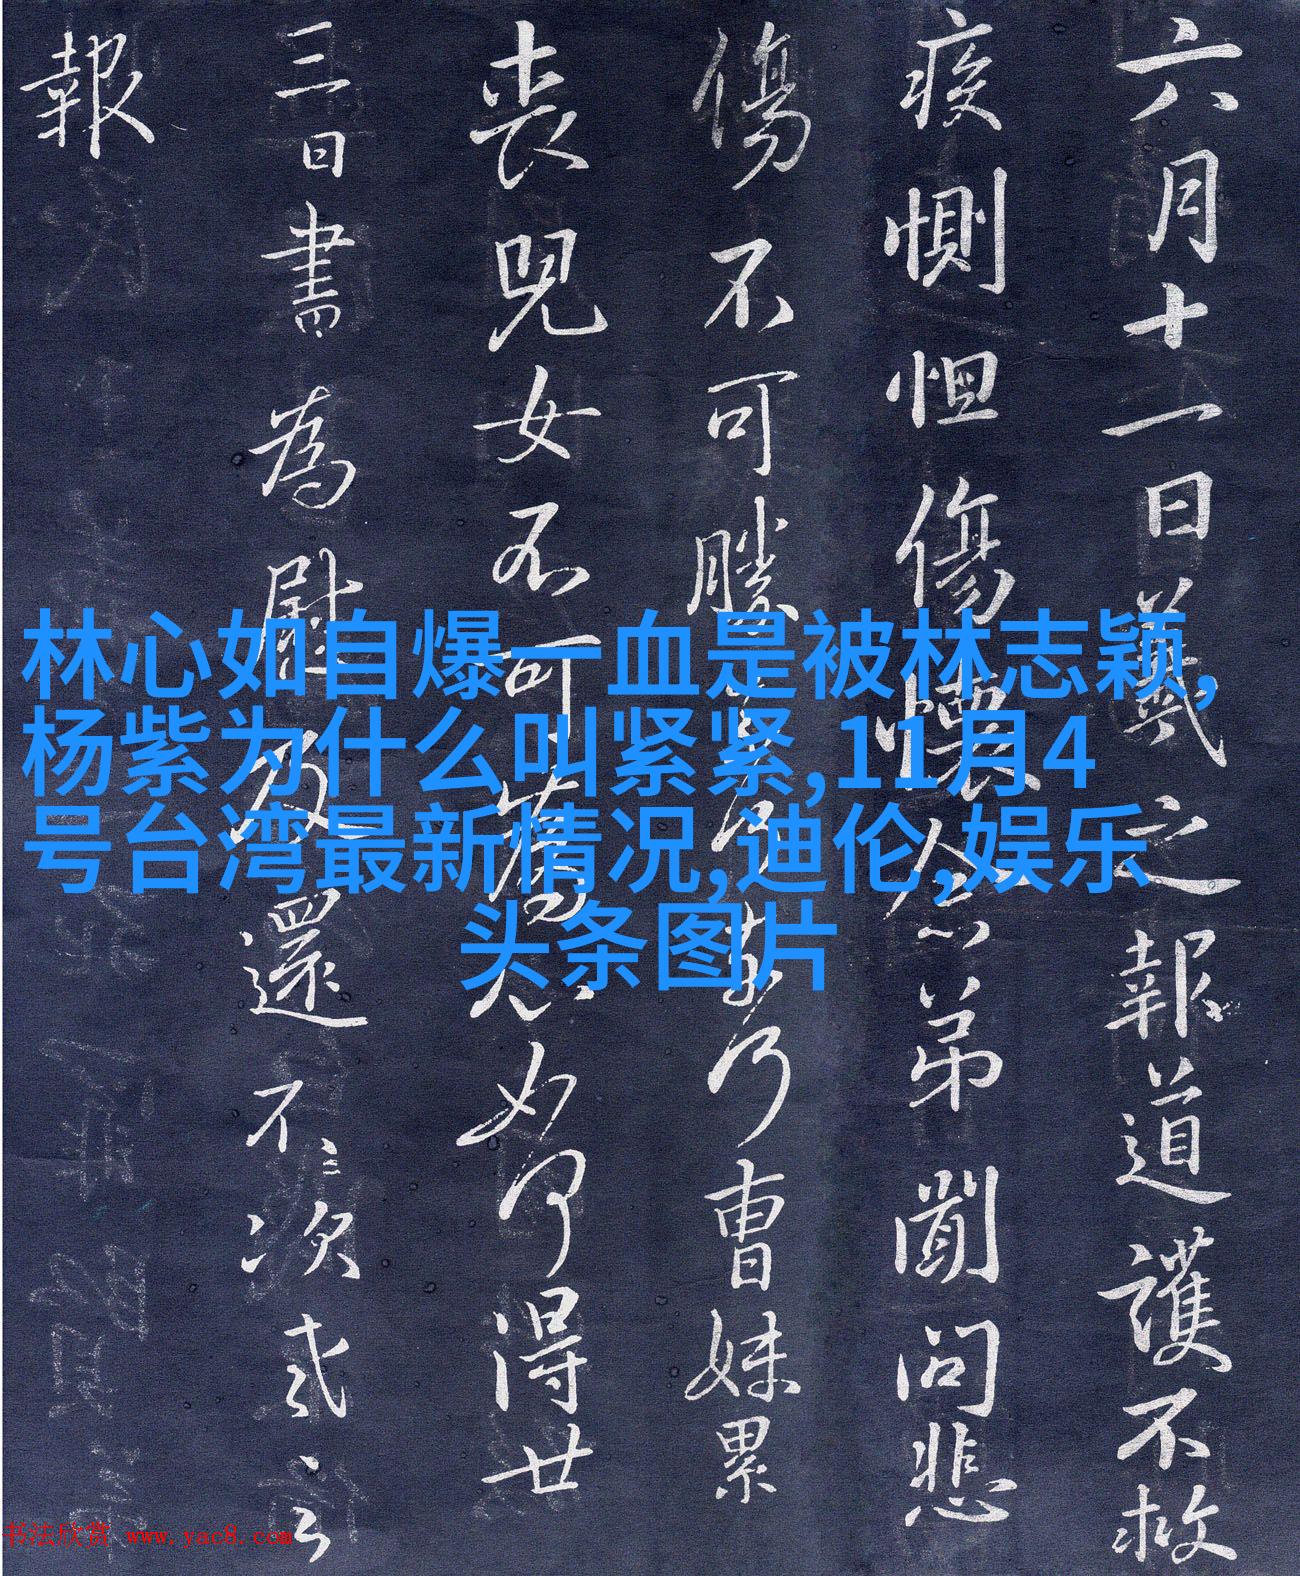 六月十一日羲之報道護不救
疾惻怛傷懷念弟聞問悲
傷不可勝乃曹妹累
丧兒女不可為心如何得世
三日書為慰及還不次弍云
報
林心如自爆一血是被林志颖,
杨紫为什么叫紧紧,11月4
号台湾最新情况,迪伦,娱乐
头条图片
书法欣赏 www.yac8.com